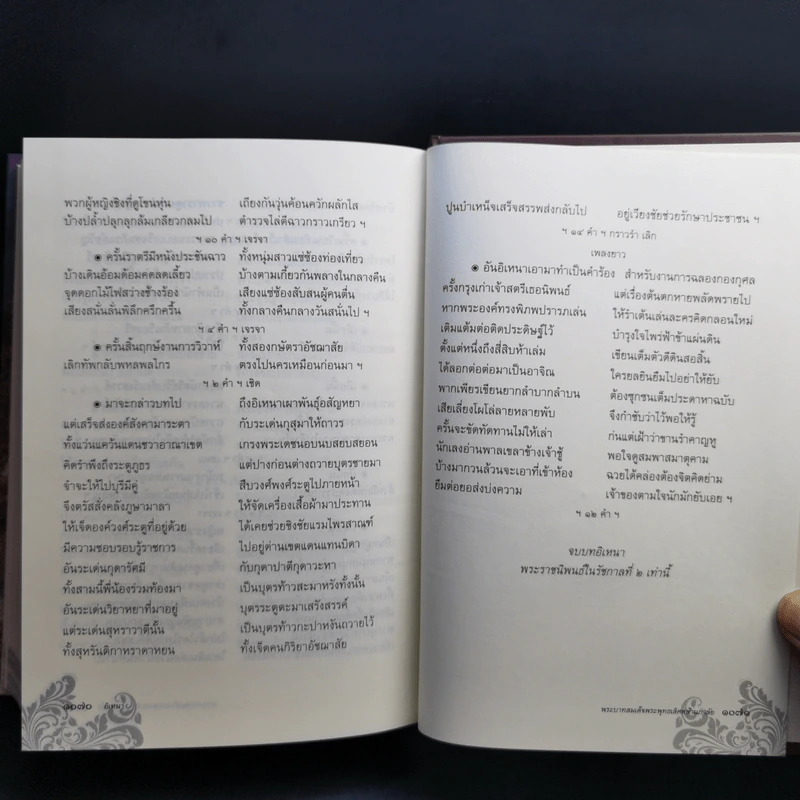 พวกผู้หญิงชิงที่ดูโขนหุ่น เถียงกันวุ่นค้อนควักผลักไส
บ้างปล้ำปลุกลุกล้มเกลียวกลมไป ตำรวจไล่ตีฉาวกราวเกรียว ฯ
ฯ ๑๐ คำ ฯ เจรจา
๏ ครั้นราตรีมีหนังประชันฉาว ทั้งหนุ่มสาวแซ่ซ้องท่องเที่ยว
บ้างเดินอ้อมค้อมคดลดเลี้ยว บ้างตามเกี้ยวกันพลางในกลางคืน
จุดดอกไม้ไฟสว่างช้างร้อง เสียงแซ่ซ้องสับสนผู้คนตื่น
เสียงสนั่นลั่นพิลึกครึกครื้น ทั้งกลางคืนกลางวันสนั่นไป ฯ
ฯ ๔ คำ ฯ เจรจา
๏ ครั้นสิ้นฤกษ์งานการวิวาห์ ทั้งสองกษัตราอัชฌาสัย
เลิกทัพกลับพหลพลไกร ตรงไปนครเหมือนก่อนมา ฯ
ฯ ๒ คำ ฯ เชิด
๏ มาจะกล่าวบทไป ถึงอิเหนาเผาพันธุ์อสัญหยา
แต่เสร็จสององค์สังคามาระตา กับระเด่นกุสุมาให้ถาวร
ทั้งแว่นแคว้นแดนชวาอาณาเขต เกรงพระเดชนอบนบสยบสยอน
คิดรำพึงถึงระตูภูธร แต่ปางก่อนต่างถวายบุตรชายมา
จำจะให้ไปบุรีมีคู่ สืบวงศ์พงศ์ระตูไปภายหน้า
จึงตรัสสั่งคลังภูษามาลา ให้จัดเครื่องเสื้อผ้ามาประทาน
ให้เจ็ดองค์วงศ์ระตูที่อยู่ด้วย ได้เคยช่วยชิงชัยแรมไพรสาณฑ์
มีความชอบรอบรู้ราชการ ไปอยู่ด่านเขตแดนแทนบิดา
อันระเด่นกุดารัศมี กับกุดาปาตีกุดาวะหา
ทั้งสามนี้พี่น้องร่วมท้องมา เป็นบุตรท้าวสะมาหรังทั้งนั้น
อันระเด่นวิยาหยาที่มาอยู่ บุตรระตูตะมาเสรังสรรค์
แต่ระเด่นสุหราวาตีนั้น เป็นบุตรท้าวกะปาหงันถวายไว้
ทั้งสุหรันดิกาหราดาหยน ทั้งเจ็ดคนกิริยาอัชฌาสัย
๑๐๗๐ อิเหนา
ปูนบำเหน็จเสร็จสรรพส่งกลับไป อยู่เวียงชัยช่วยรักษาประชาชน ฯ
ฯ ๑๔ คำ ฯ กราวรำ เลิก
เพลงยาว
๏ อันอิเหนาเอามาทำเป็นคำร้อง สำหรับงานการฉลองกองกุศล
ครั้งกรุงเก่าเจ้าสตรีเธอนิพนธ์ แต่เรื่องต้นตกหายพลัดพรายไป
หากพระองค์ทรงพิภพปรารภเล่น ให้รำเต้นเล่นละครคิดกลอนใหม่
เติมแต้มต่อติดประดิษฐ์ไว้ บำรุงใจไพร่ฟ้าข้าแผ่นดิน
ตั้งแต่หนึ่งถึงสี่สิบห้าเล่ม เขียนเต็มตัวดีดินสอสิ้น
ได้ลอกต่อต่อมาเป็นอาจิณ ใครยลยินยืมไปอย่าให้ยับ
พากเพียรเขียนยากลำบากลำบน ต้องซุกซนเต็มประดาหาฉบับ
เสียเสี่ยงโผไล่ลายหลายพับ จึงกำชับว่าไว้พอให้รู้
ครั้นจะขัดทัดทานไม่ให้เล่า ก่นแต่เฝ้าว่าขานรำคาญหู
นักเลงอ่านพาลเขลาข้างเจ้าชู้ พอใจดูสมพาสมาตุคาม
บ้างมากวนล้วนจะเอาที่เข้าห้อง ฉวยได้คล่องต้องจิตคิดย่าม
ยืมต่อยอส่งบ่งความ เจ้าของตามใจนักมักยับเอย ฯ
ฯ ๑๒ คำ ฯ
จบบทอิเหนา
พระราชนิพนธ์ในรัชกาลที่ ๒ เท่านี้
พระบาทสมเด็จพระพุทธเลิศหล้านภาลัย ๑๐๗๑